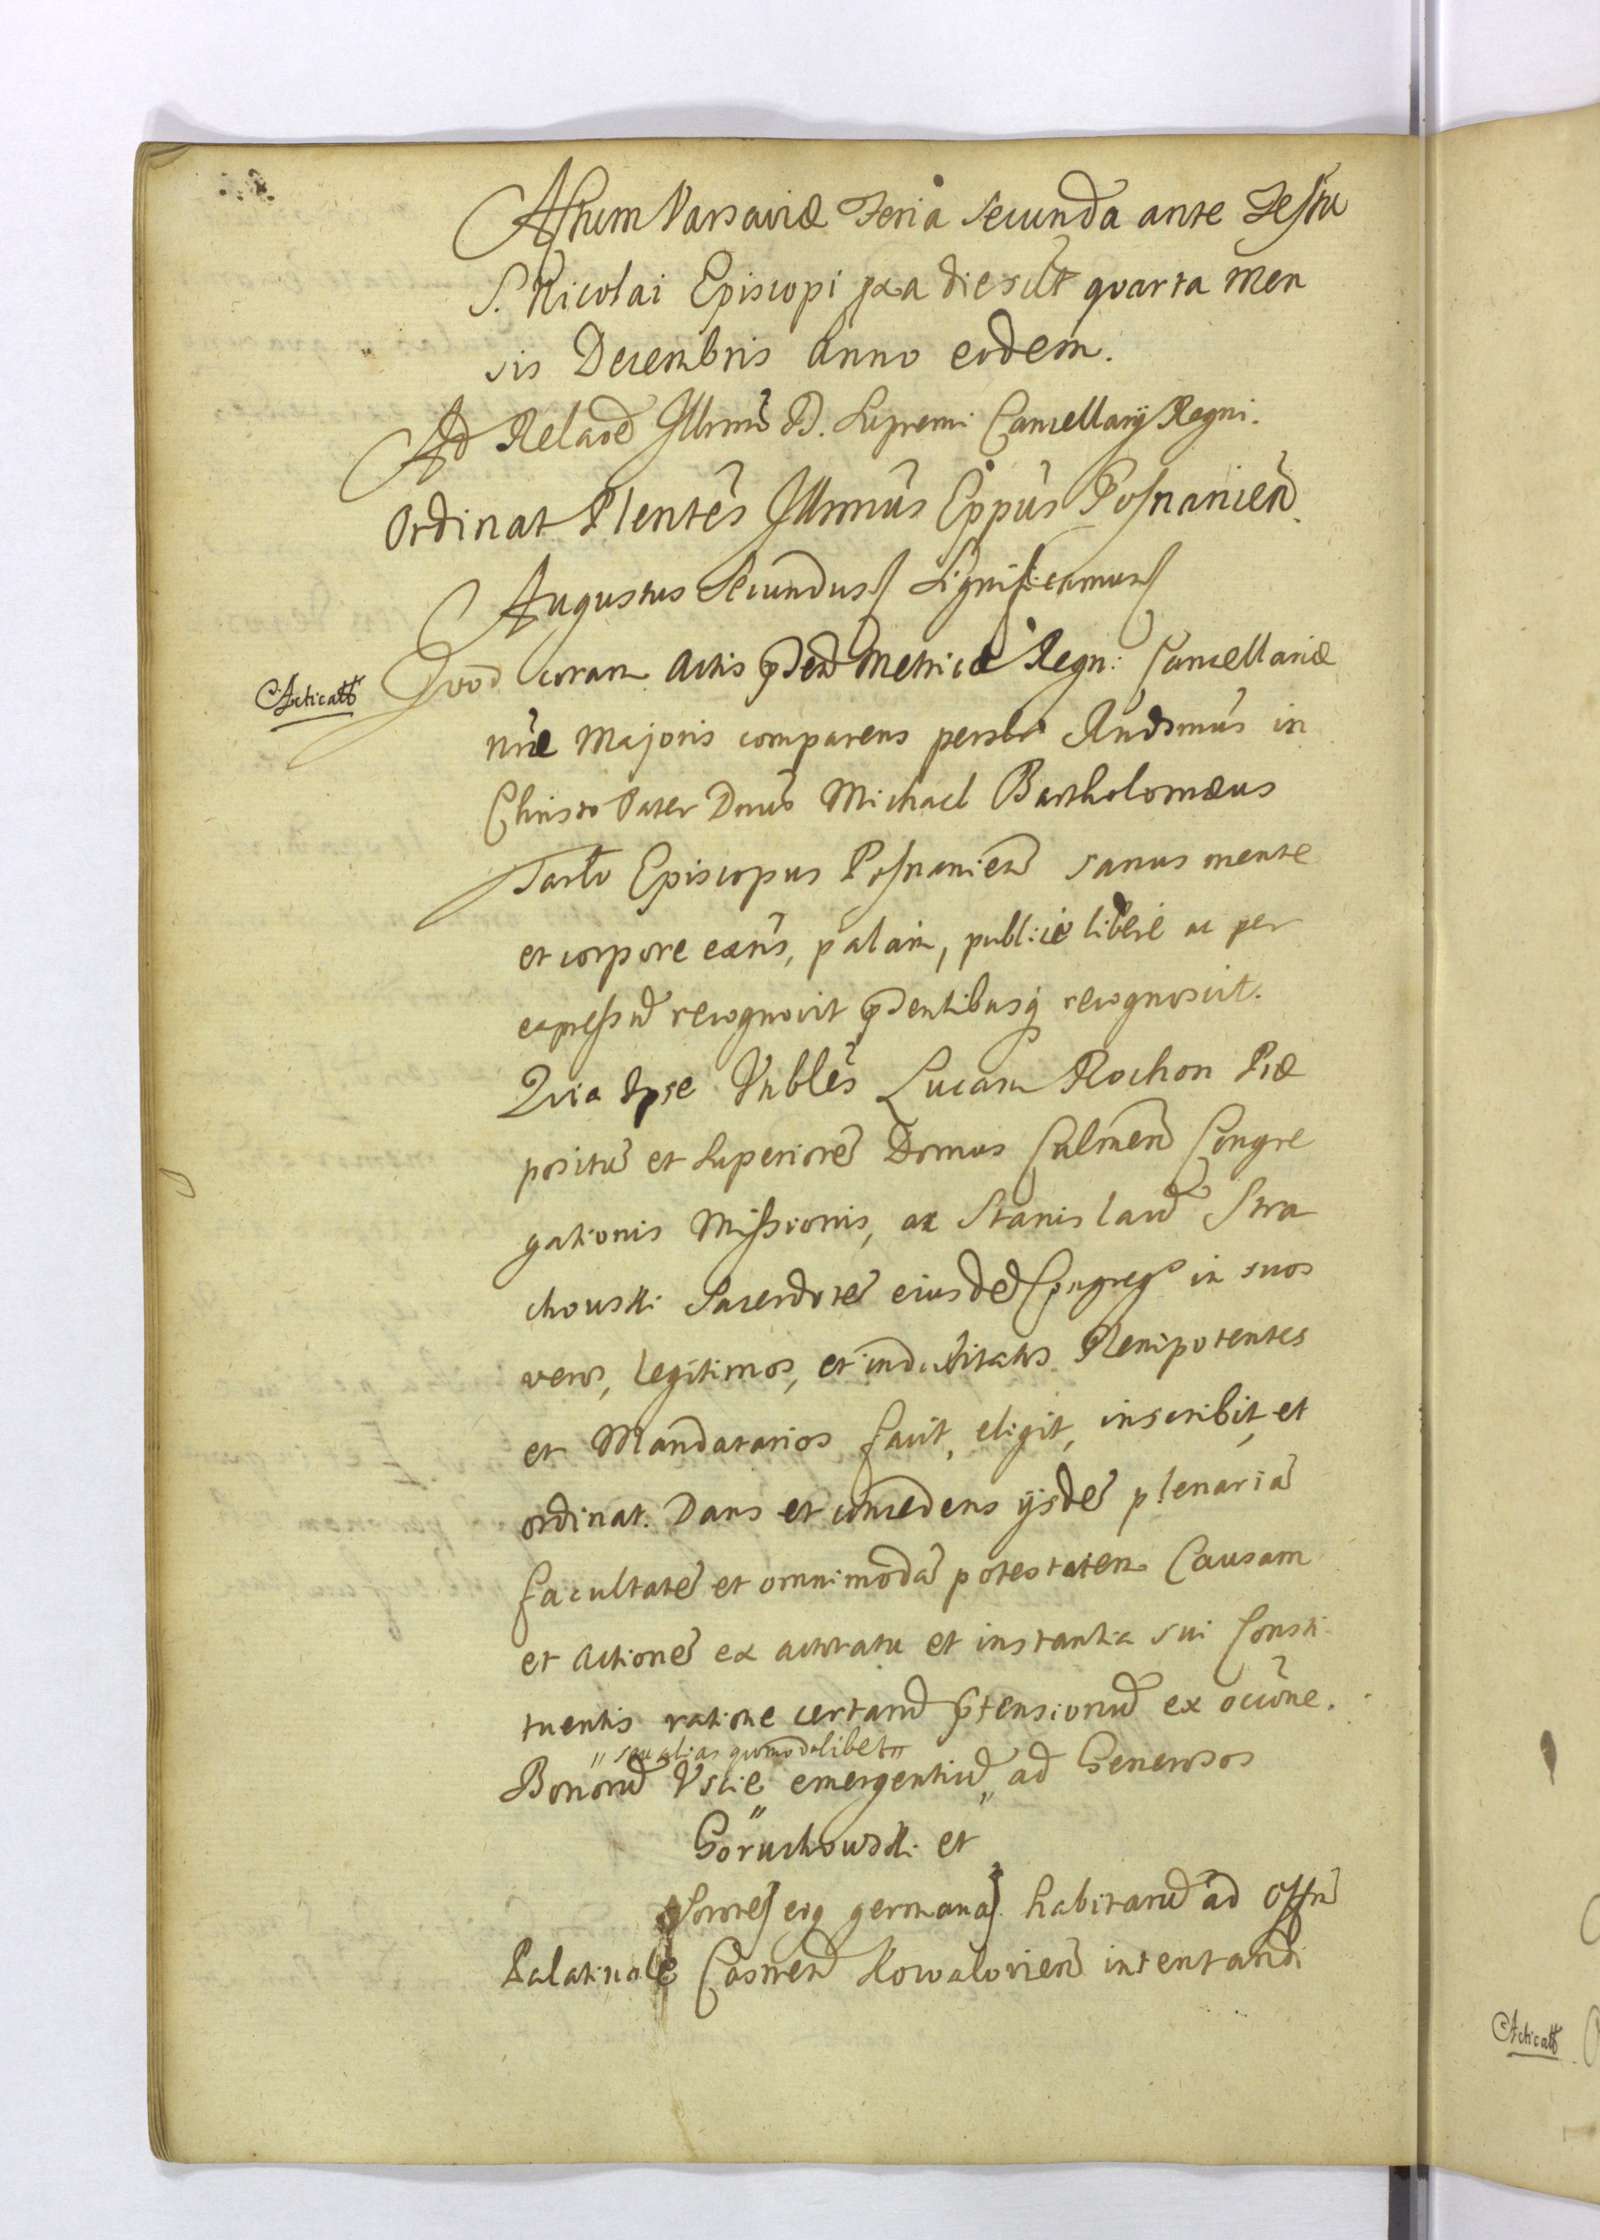 Actum Varsaviæ Feria Secunda ante Festu
S. Nicolai Episcopi pxa die scilt quarta Men
sis Decembris Anno eodem.
Ad Relaoē Illrmi D. Supremi Cancellarij Regni.
Ordinat Plentes Illrmus Eppus Posnanien
Augustus Secundus Significamus
Acticatt
Quod coram Actis pñtibus Metrices Regn: Cancellariæ
nræ Majoris comparens persbr Rndsmus in
Christo Pater Dnus Michael Bartholomæus
Tarlo Episcopus Posnanien sanus mente
et corpore exns, palam, publice libere ac per
expressū recognovit pñtentibusq recognoscit.
Quia Ipse Vnbles Lucam Rochon Præ
positū et Superiorē Domus Culmen Congre
gationis Missionis, ac Stanislaū Stra
chouski Sacerdotē eiusdē Congregs in suos
veros, legitimos, et indubitatos Plenipotentes
et Mandatarios facit, eligit, inscribit, et
ordinat. Dans et concedens ijsdē plenariā
facultatē et omnimodā potestatem Causam
et Actionē ex actoratu et instantia sui Consti
tuentis ratione certarū prtensionū ex occone.
" seu alias quomodolibet "
Bonorū Uscie emergentiū " ad Generosos
Goruchowski et
Sorores eiq germanas habitarū ad Offm
Palatinale Castren Kowalovien intentandi
Acticatt